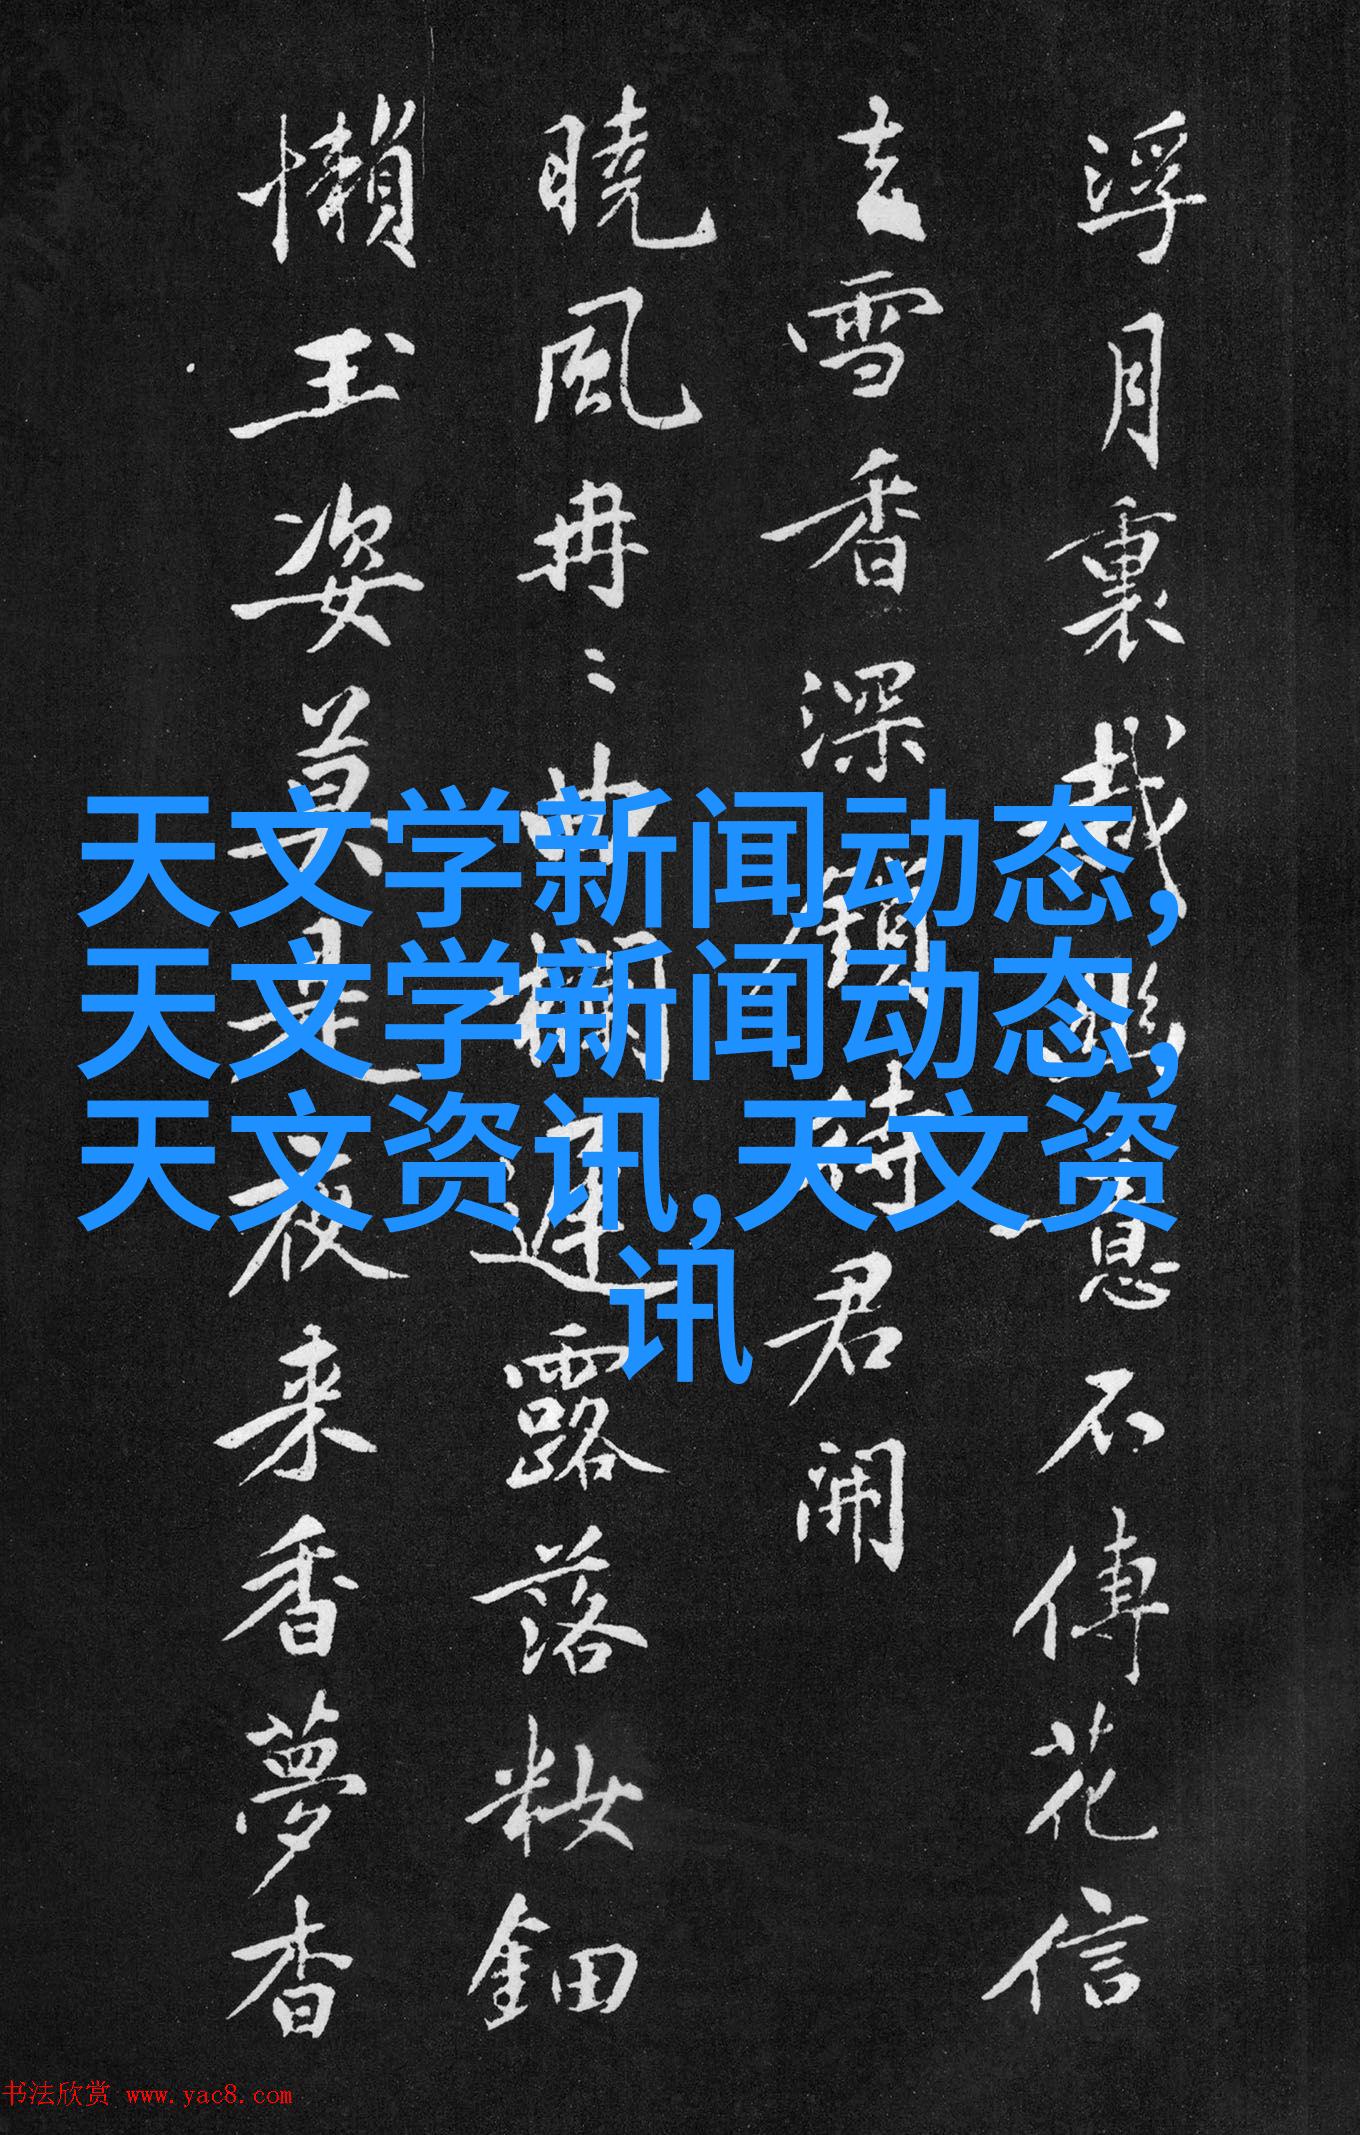 天文学新闻动态,
天文学新闻动态,
天文资讯,天文资
讯
浮月裏裁息不傳花信
去雪香深鎖待君開
曉風冉〻曲欄遲露落粧鈿
懶玉姿莫是夜来香夢杳
书法欣赏 www.yac8.com